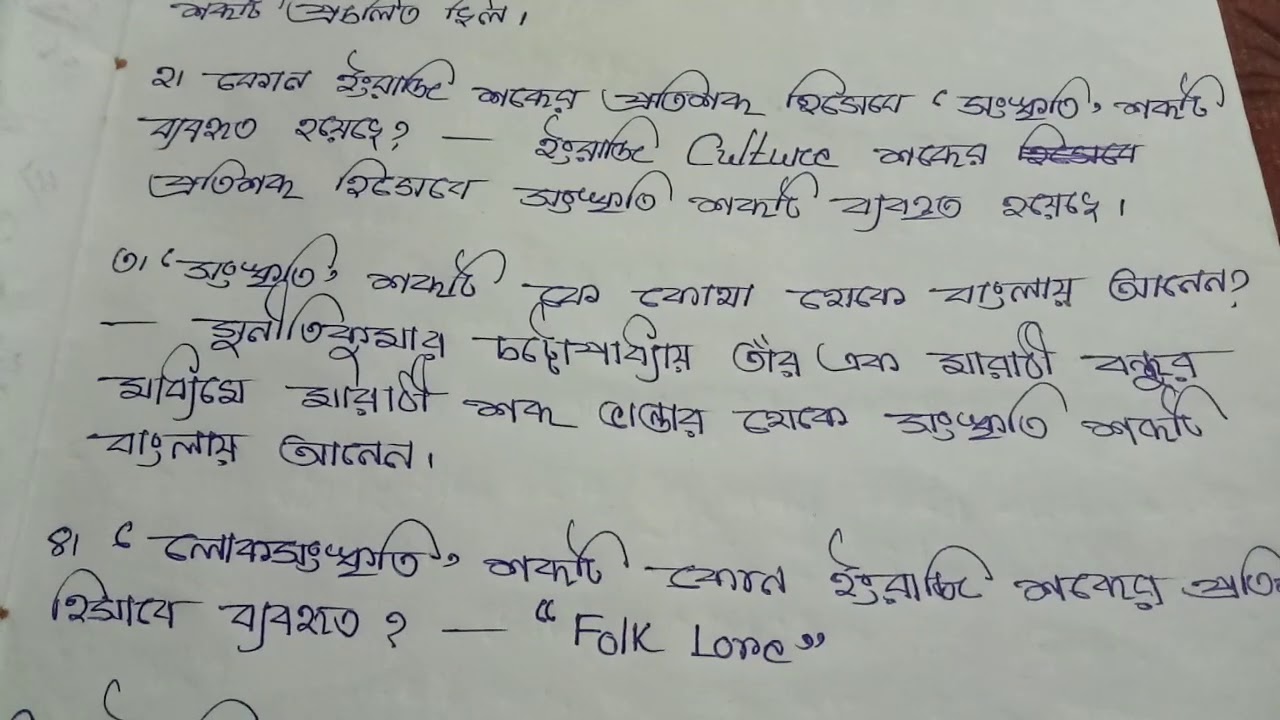 শব্দটি প্রচলিত ছিল।
২। কোন ইংরাজি শব্দের প্রতিশব্দ হিসাবে 'সংস্কৃতি' শব্দটি
ব্যবহৃত হয়েছে? — ইংরাজি Culture শব্দের
প্রতিশব্দ হিসাবে সংস্কৃতি শব্দটি ব্যবহৃত হয়েছে।
৩। 'সংস্কৃতি' শব্দটি কে কোথা থেকে বাংলায় আনেন?
— সুনীতিকুমার চট্টোপাধ্যায় তাঁর এক মারাঠী বন্ধুর
মাধ্যমে মারাঠী শব্দ ভান্ডার থেকে সংস্কৃতি শব্দটি
বাংলায় আনেন।
৪। 'লোকসংস্কৃতি' শব্দটি কোন ইংরাজি শব্দের প্রতি
হিসাবে ব্যবহৃত? — "Folk Lore"